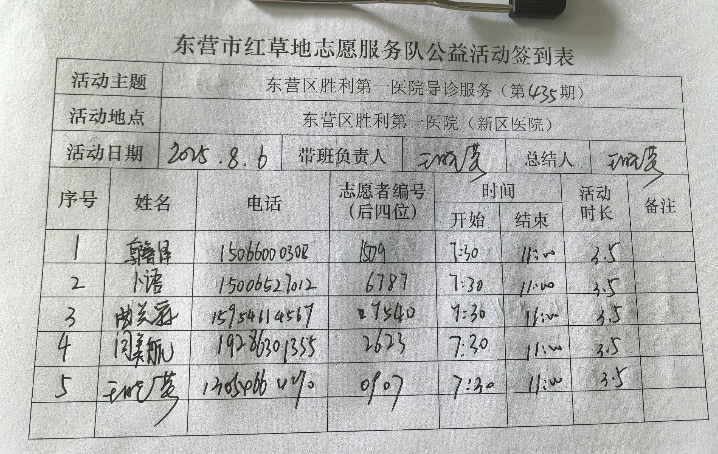 东营市红草地志愿服务队公益活动签到表
活动主题 东营区胜利第一医院导诊服务（第435期）
活动地点 东营区胜利第一医院（新区医院）
活动日期 2025.8.6 带班负责人 总结人
序号 姓名 电话 志愿者编号（后四位） 时间 开始 结束 活动时长 备注
1 15066000308 1509 7:30 11:00 3.5
2 卜语 15006527012 6787 7:30 11:00 3.5
3 15954614567 7540 7:30 11:00 3.5
4 闫美航 19286301355 2623 7:30 11:00 3.5
5 0907 7:30 11:00 3.5